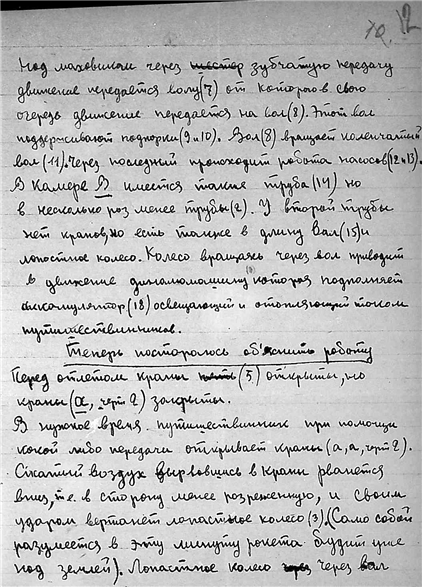 12
Над маховиком через зубчатую передачу
движение передается валу (7) от которого в свою
очередь движение передается на вал (8). Этот вал
поддерживают подпорки (9 и 10). Вал (8) вращает коленчатый
вал (11). Через последний происходит работа насосов (12 и 13).
В камере В имеется также труба (14) но
в несколько раз менее трубы (2). У второй трубы
нет кранов, но есть также в длину вал (15) и
лопастное колесо. Колесо вращаясь через вал приводит
в движение динамомашину которая подпоняет
аккамулятор (18) освещающий и отопляющий током
путишественников.
Теперь постораюсь об'яснить работу
Перед отлетом краны (5) открыты, но
краны (а, черт 2) закрыты.
В нужное время путишественник при помощи
какой либо передачи открывает краны (а, а, черт 2.
Сжатый воздух вырвовшись в краны рванется
вниз, т.е. в сторону менее розреженную, и своим
ударом вертанет лопастное колесо (3). (Само собой
разумеется в эту минуту ракета будит уже
над землей). Лопастное колесо через вал